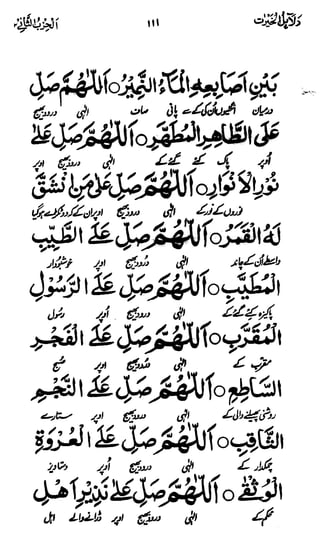 دلائل الخیرات ۱۱۱ الحزب الثانی
بَيْنِ اَصَابِعِهِ الْمَآءُ النَّمِيْرُ ○ اَللّٰهُمَّ صَلِّ
درمیان انگلیوں اُن کی کے پانی صاف الٰہی درود بھیج
عَلَى الطَّاهِرِ الْمُطَهَّرِ ○ اَللّٰهُمَّ صَلِّ عَلٰى
اُوپر پاک کئے گئے کے الٰہی درود بھیج اوپر
نُوْرِ الْاَنْوَارِ ○ اَللّٰهُمَّ صَلِّ عَلٰى مَنِ انْشَقَّ
نوروں کے نور کے الٰہی درود بھیج اوپر ان کے کہ دو ٹکڑے ہو گیا
لَهُ الْقَمَرُ ○ اَللّٰهُمَّ صَلِّ عَلَى الطَّيِّبِ
واسطے اُن کے چاند الٰہی درود بھیج اوپر خوشبودار
الْمُطَيَّبِ ○ اَللّٰهُمَّ صَلِّ عَلَى الرَّسُوْلِ
پاکیزہ کئے گئے کے الٰہی درود بھیج اوپر رسول
الْمُقَرَّبِ ○ اَللّٰهُمَّ صَلِّ عَلَى الْفَجْرِ
مقرب کے الٰہی درود بھیج اوپر صبح
السَّاطِعِ ○ اَللّٰهُمَّ صَلِّ عَلَى النَّجْمِ
روشنی پھیلنے والی کے الٰہی درود بھیج اوپر ستارے
الثَّاقِبِ ○ اَللّٰهُمَّ صَلِّ عَلَى الْعُرْوَةِ
چمکدار کے الٰہی درود بھیج اُوپر دستاویز
الْوُثْقٰى ○ اَللّٰهُمَّ صَلِّ عَلٰى نَذِيْرِ اَهْلِ
محکم کے الٰہی درود بھیج اوپر ڈرانے والے اہل